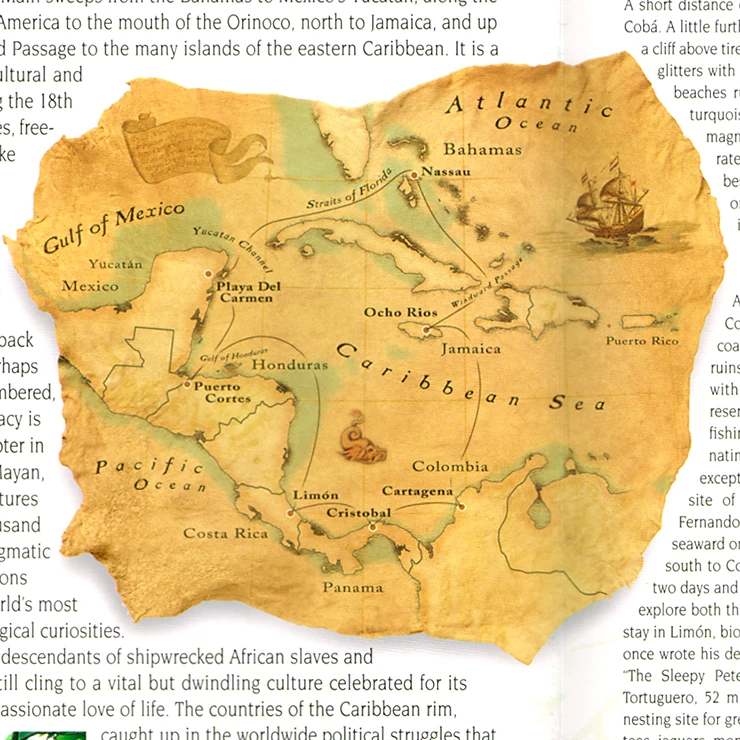 Main sweeps from the Bahamas to Mexico's Yucatán, along the
America to the mouth of the Orinoco, north to Jamaica, and up
d Passage to the many islands of the eastern Caribbean. It is a
ultural and
g the 18th
es, free-
ke
back
rhaps
mbered,
acy is
oter in
Mayan,
tures
usand
gmatic
ons
rld's most
gical curiosities.
descendants of shipwrecked African slaves and
till cling to a vital but dwindling culture celebrated for its
assionate love of life. The countries of the Caribbean rim,
caught up in the worldwide political struggles that
Atlantic
Ocean
Bahamas
Nassau
Straits of Florida
Gulf of Mexico
Yucatan Channel
Yucatán
Mexico
Playa Del
Carmen
Windward Passage
Ocho Rios
Jamaica
Puerto Rico
Gulf of Honduras
Honduras
Puerto
Cortes
Caribbean Sea
Pacific
Ocean
Colombia
Cartagena
Limón
Cristobal
Costa Rica
Panama
A short distance
Cobá. A little furth
a cliff above tire
glitters with
beaches ru
turquois
magn
rate
be
o
i
A
Co
coa
ruins
with
reser
fishin
natin
except
site of
Fernando
seaward or
south to Co
two days and
explore both th
stay in Limón, bio
once wrote his de
"The Sleepy Pete
Tortuguero, 52 m
nesting site for gre